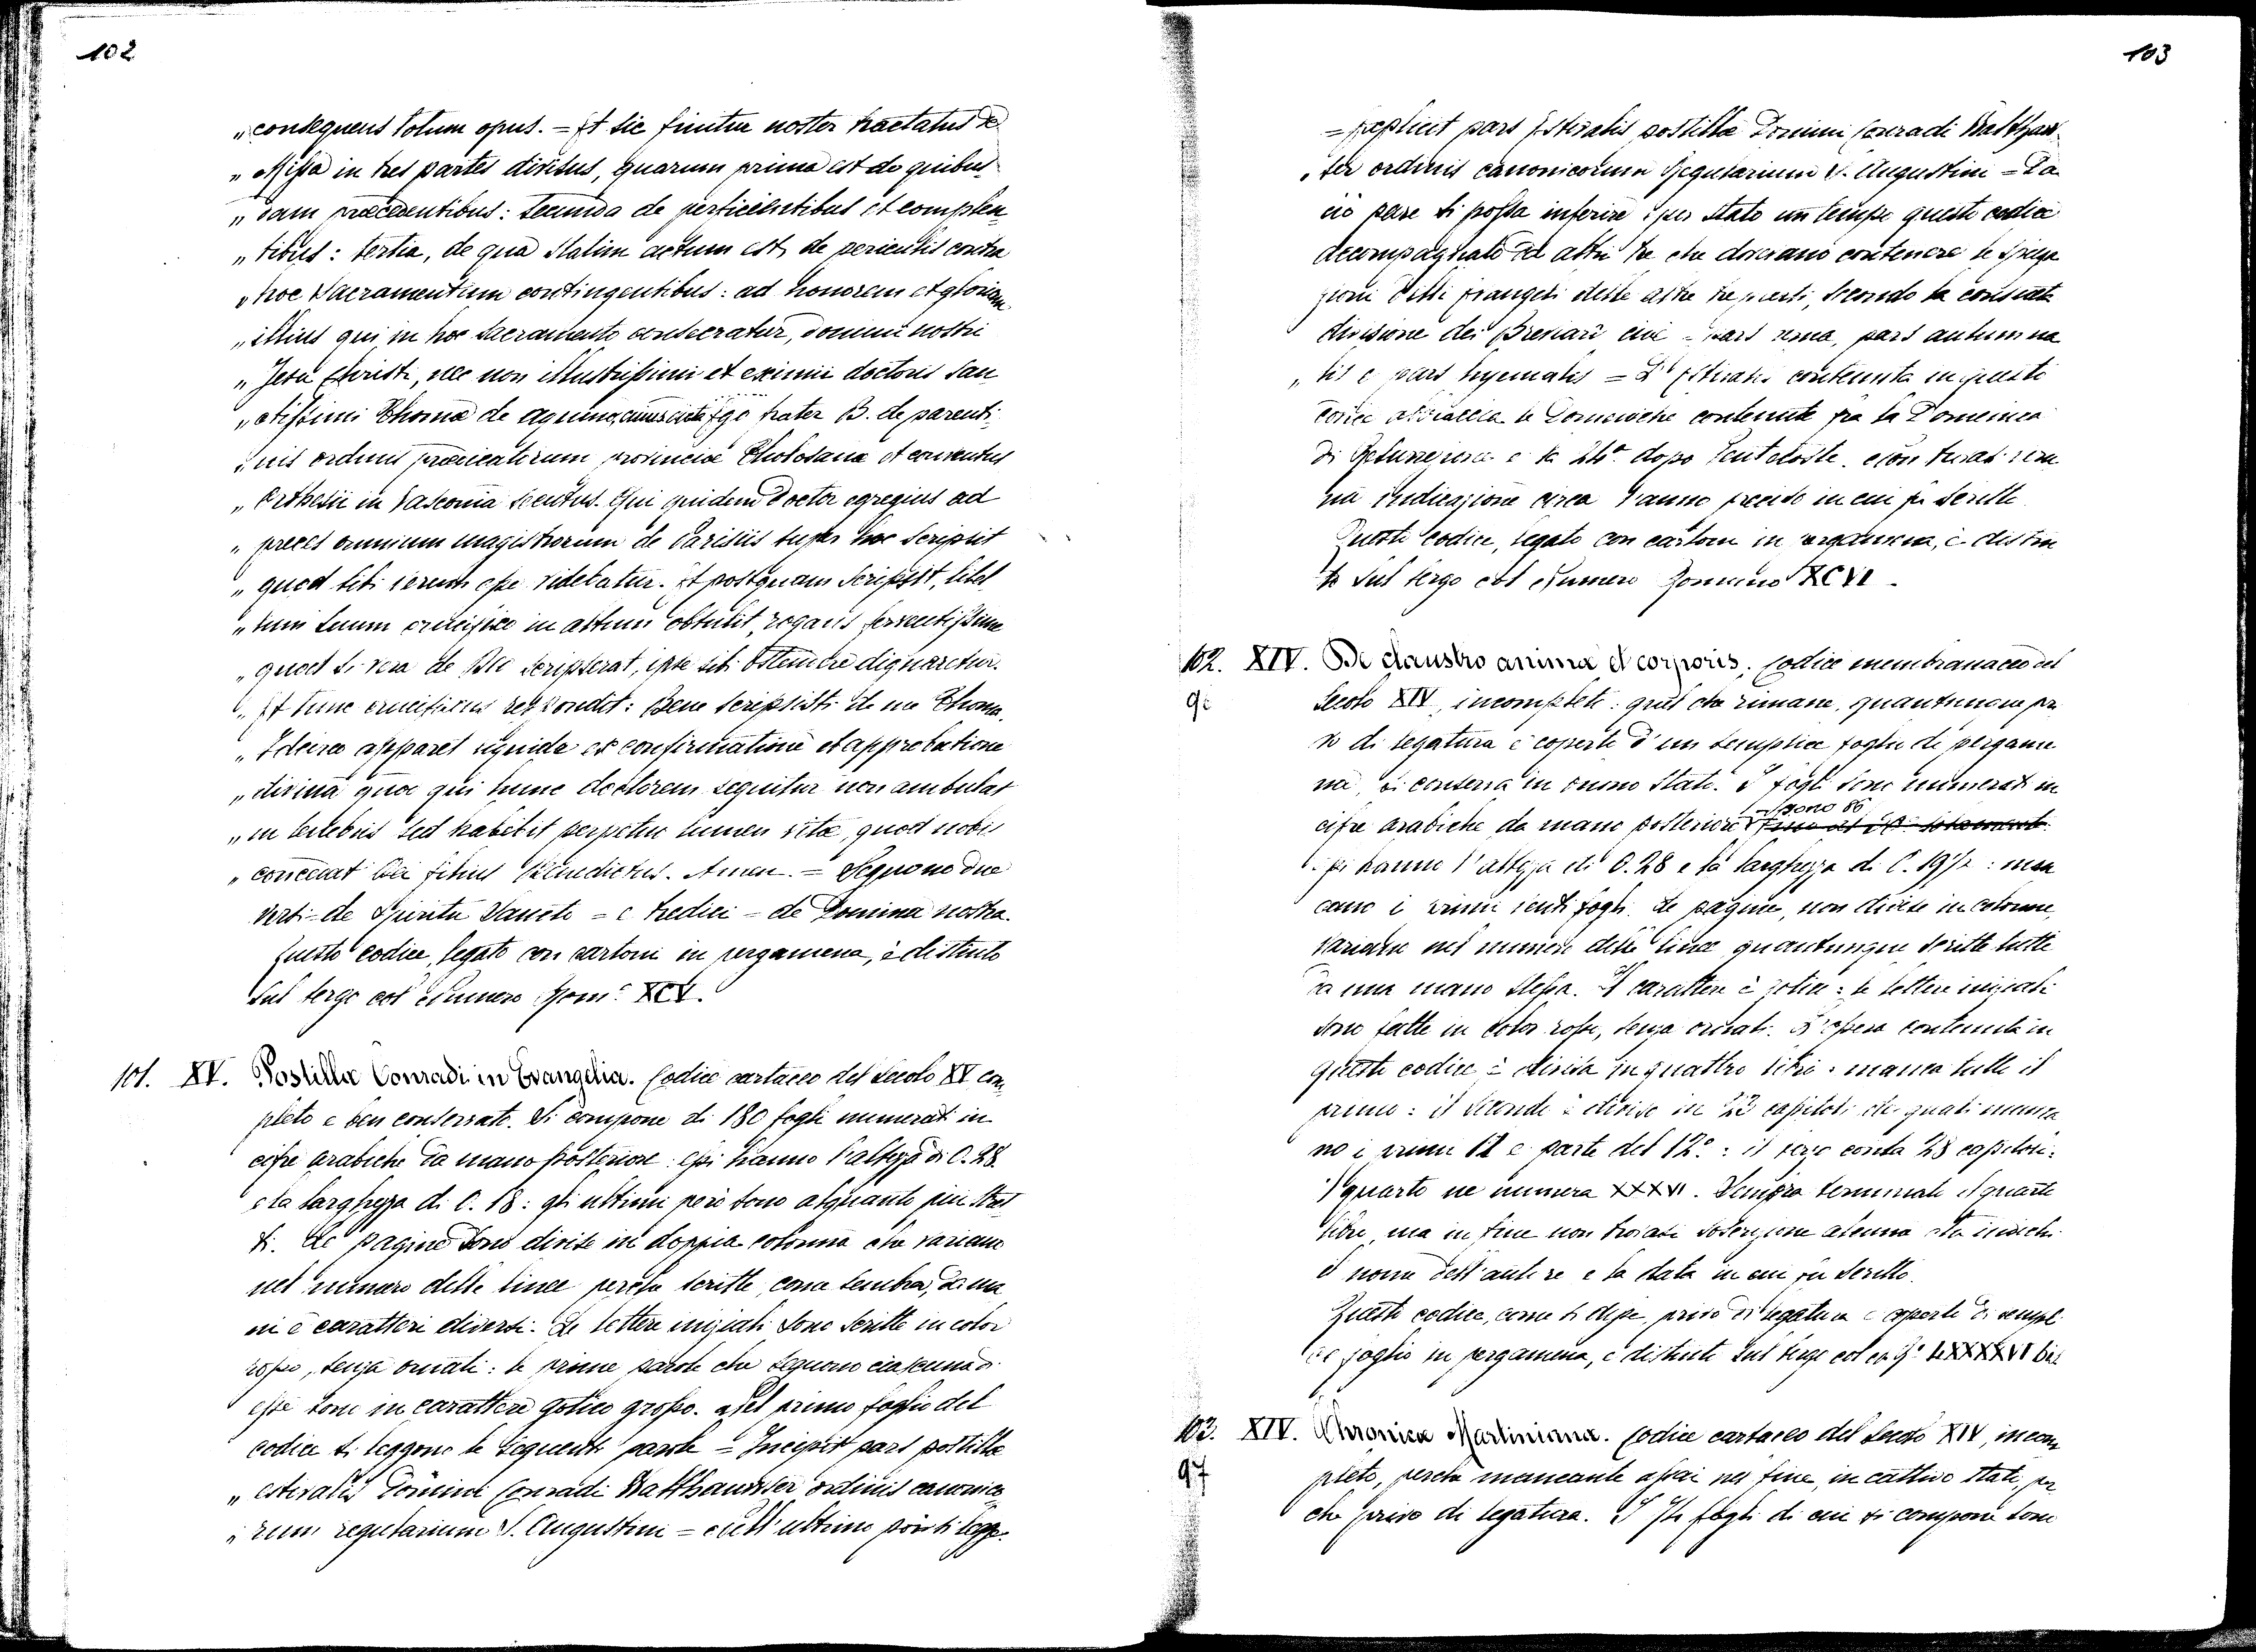 102
„consequens totum opus. = Et sic finitur noster tractatus de
„Missa in tres partes divisus, quarum prima est de quibus-
„dam præcedentibus: secunda de perficientibus et complen
„tibus: tertia, de qua statim actum est, de periculis contra
„hoc Sacramentum contingentibus: ad honorem et gloriam
„illius qui in hoc sacramento consecratur, domini nostri
„Jesu Christi, nec non illustrissimi et eximii doctoris San
„ctissimi Thomæ de Aquino, Ego frater B. de parenti-
„nis ordinis prædicatorum provinciæ Tholosanæ et conventus
„Orthesii in Vasconia Qui quidem Doctor egregius ad
„preces omnium magistrorum de Parisiis super hoc scripsit
„quod sibi verum esse videbatur. Et postquam scripsit, libel
„lum suum crucifixo in altum obtulit, rogans ferventissime
„quod si vera de scripserat, ipse sibi ostendere dignaretur.
„Et tunc crucifixus respondit: Bene scripsisti de me Thoma.
„Idcirco apparet liquide ex confirmatione et approbatione
„divina quod qui hunc doctorem sequitur non ambulat
„in tenebris sed habebit perpetuo lumen vitæ, quod nobis
„concedat Dei filius benedictus. Amen. = Seguono due
versi = de Spiritu Sancto = e tredici = de Domina nostra.
Questo codice, legato con cartoni in pergamena, è distinto
sul tergo col Numero Rom.º XCV.
101. XV. Postillæ Conradi in Evangelia. Codice cartaceo del Secolo XV com
pleto e ben conservato. Si compone di 180 fogli numerati in
cifre arabiche da mano posteriore: essi hanno l'altezza di C. 28
e la larghezza di C. 18: gli ultimi però sono alquanto più stret
ti. Le pagine sono divise in doppia colonna che variano
nel numero delle linee perchè scritte, come sembra, da ma
ni e caratteri diversi. Le lettere iniziali sono scritte in color
rosso, senza ornati: le prime parole che seguono ciascuna di
esse sono in carattere gotico grosso. Nel primo foglio del
codice si leggono le seguenti parole = Incipit pars postillæ
„estivalis Domini Conradi Walthausser ordinis canonico
„rum regularium S. Augustini = e nell'ultimo poi si legge.
103
= Explicit pars Estivalis postillæ Domini Conradi Walthaus-
„ser ordinis canonicorum Regularium S. Augustini = Da
ciò pare si possa inferire esser stato un tempo questo codice
accompagnato ad altri tre che dovevano contenere le spiega
zioni degli Evangeli delle altre tre parti, secondo la consueta
divisione dei Breviari cioè = pars verna, pars autumna
„lis e pars hyemalis = L'Estivalis contenuta in questo
codice abbraccia le Domeniche contenute fra la Domenica
di Resurrezione e la 24ª. dopo Pentecoste. Non trovasi veru
na indicazione circa l'anno preciso in cui fu scritto.
Questo codice, legato con cartoni in pergamena, è distin
to sul tergo col Numero Romano XCVI.
102. XIV. De claustro animæ et corporis. Codice membranaceo del
Secolo XIV, incompleto: quel che rimane, quantunque pri
vo di legatura e coperto d'un semplice foglio di pergame
na, si conserva in buono stato. I fogli sono numerati in
cifre arabiche da mano posteriore
essi hanno l'altezza di C. 28 e la larghezza di C. 19½: man
cano i primi venti fogli. Le pagine, non divise in colonne,
variano nel numero delle linee quantunque scritte tutte
da una mano stessa. Il carattere è gotico: le lettere iniziali
sono fatte in color rosso, senza ornati. L'opera contenuta in
questo codice è divisa in quattro libri: manca tutto il
primo: il secondo è diviso in 23 capitoli dei quali manca
no i primi 11 e parte del 12º: il terzo conta 28 capitoli:
il quarto ne numera XXXVI. Sembra terminato il quarto
libro, ma in fine non trovasi soscrizione alcuna che indichi
il nome dell'autore e la data in cui fu scritto.
Questo codice, come si disse, privo di legatura e coperto di sempli
ce foglio in pergamena, è distinto sul tergo col Nº. LXXXXVI bis
103. XIV. Chronica Martiniana. Codice cartaceo del Secolo XIV, incom
97
pleto, perchè mancante assai nel fine, in cattivo stato, per
che privo di legatura. I fogli di cui si compone sono